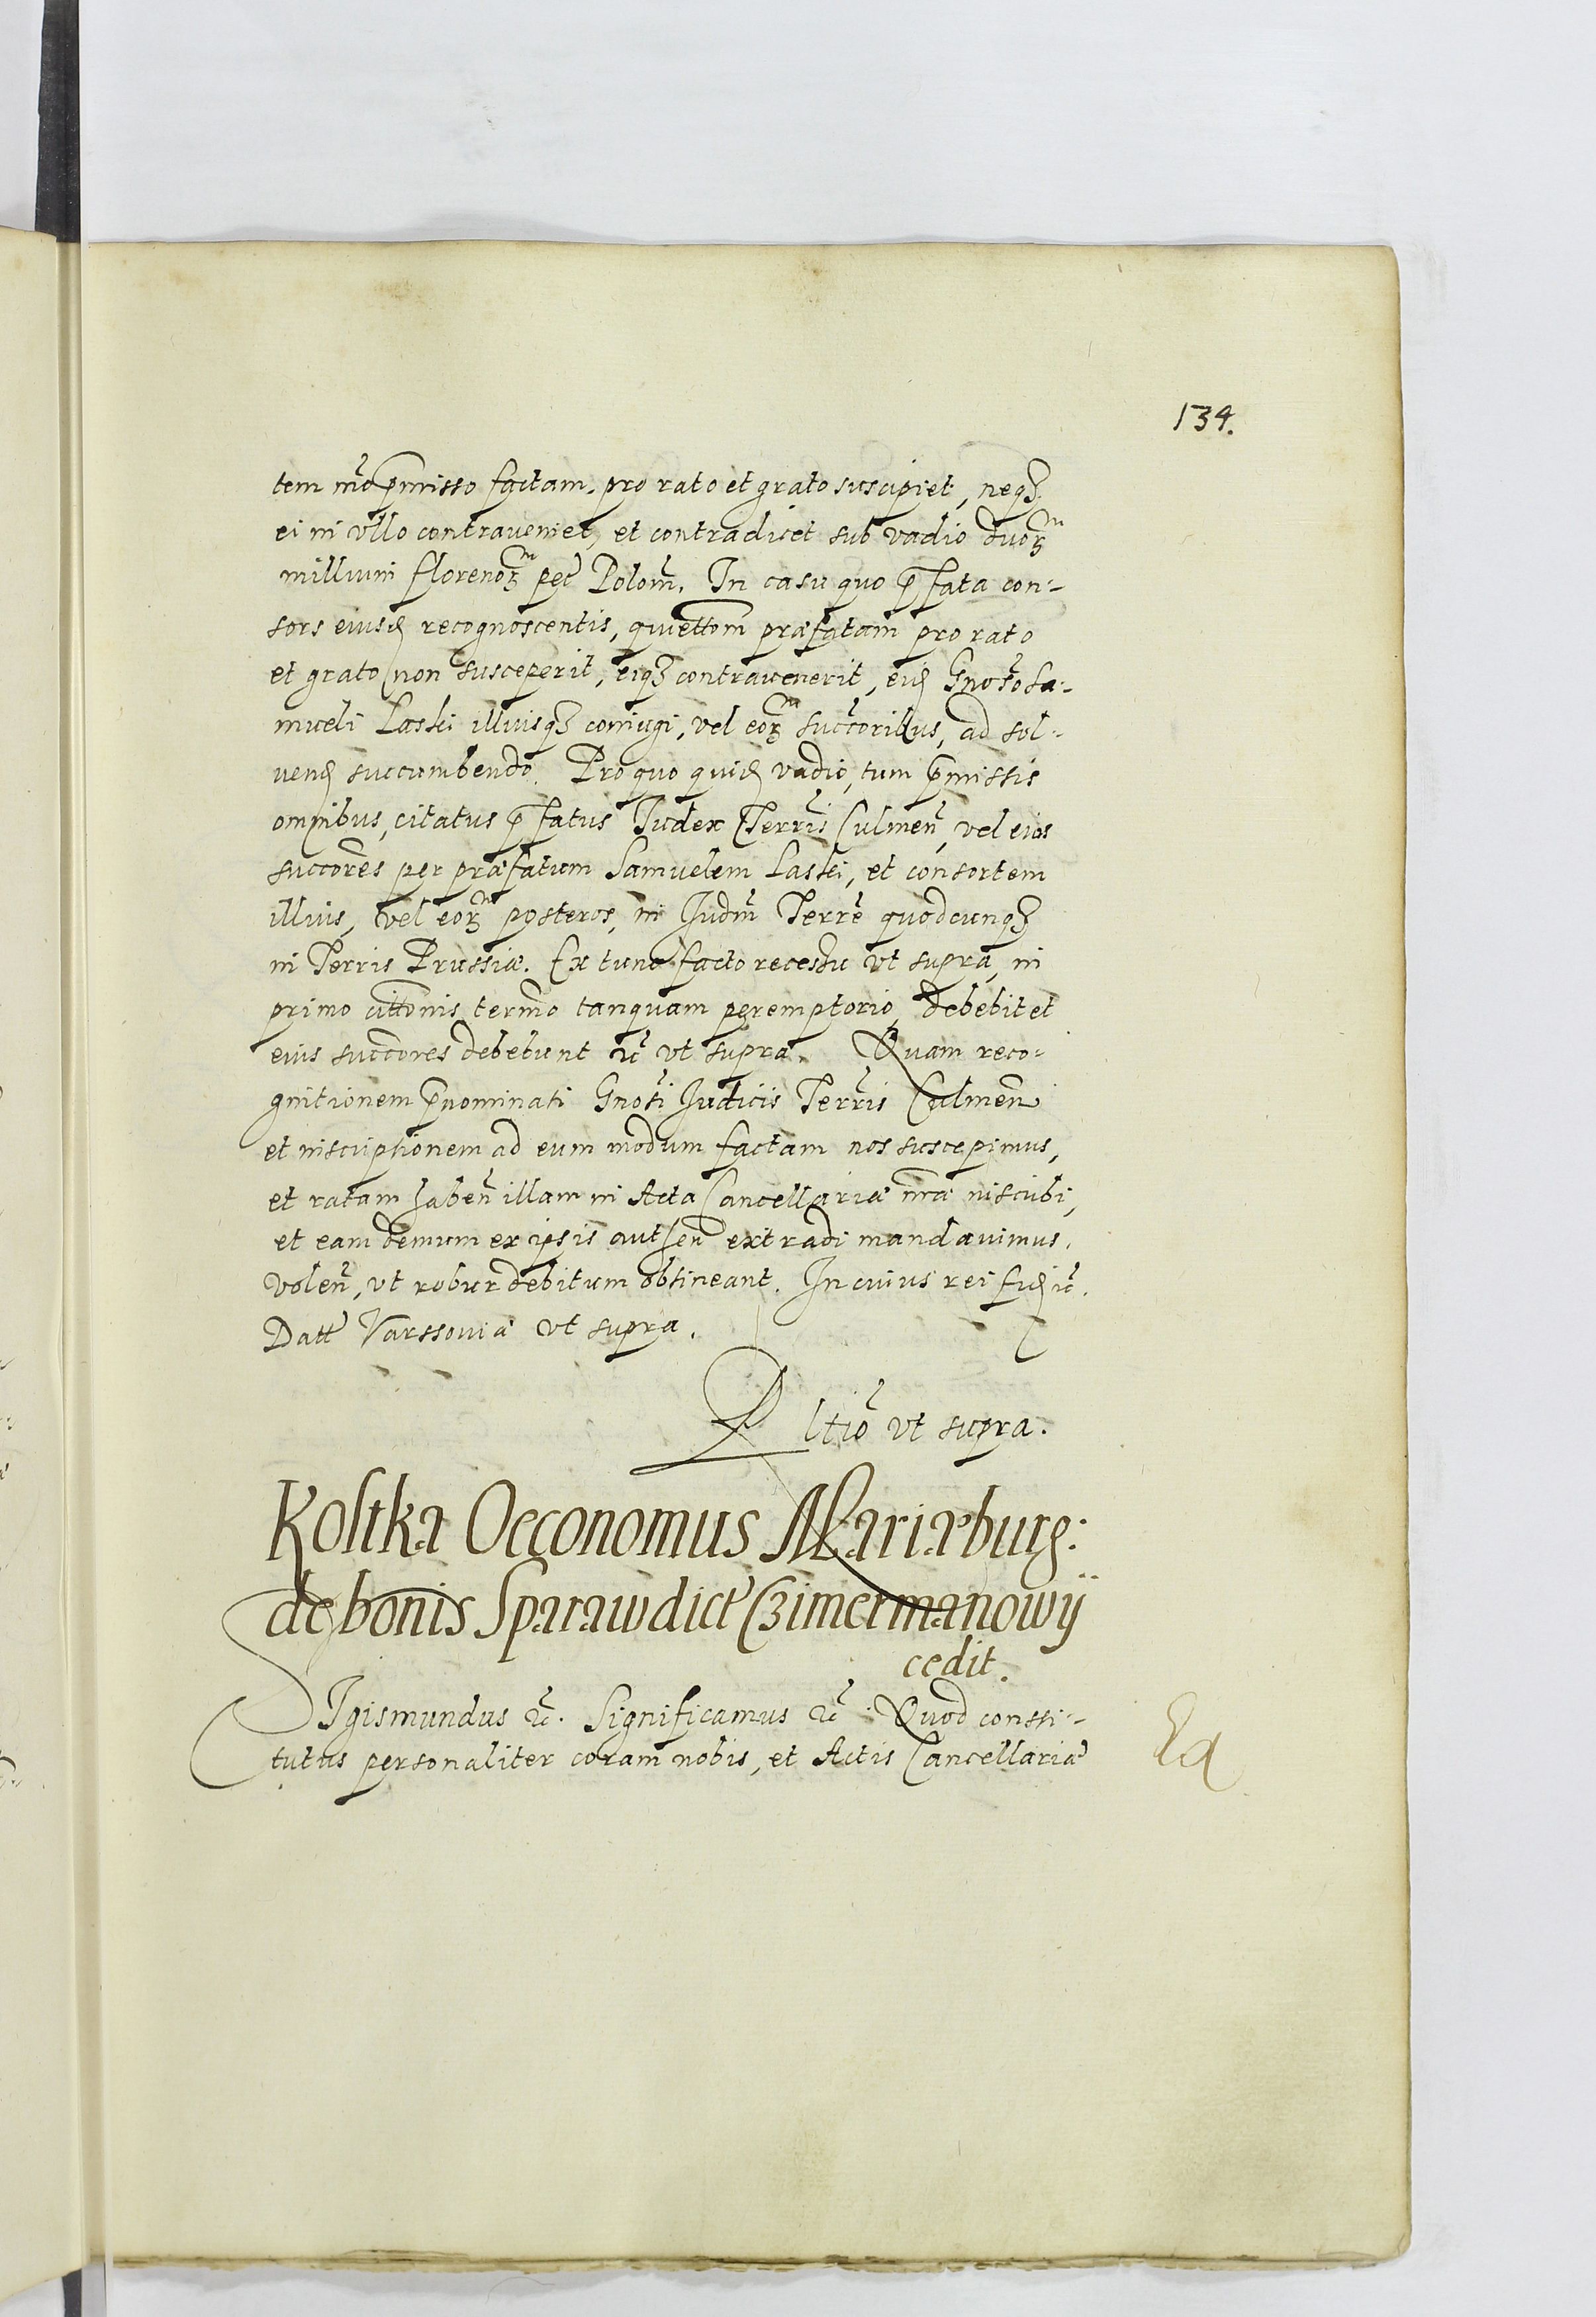 134.
tem mõo p̃misso factam, pro rato et grato suscipiet, neqꝫ
ei in vllo contraveniet, et contradicet sub vadio duorꝫ
millium florenorꝫ pec̃ Polon̄. In casu quo p̃fata con:-
sors eiusd recognoscentis, quiettom̃ præfatam pro rato
et grato non susceperit, eiqꝫ contravenerit, eid Gnoso Sa:-
mueli Laski illiusqꝫ coniugi, vel eorꝫ succoribus, ad sol:-
vend succumbendo. Pro quo quid vadio, tum p̃missis
omnibus, citatus p̃fatus Iudex Terris̃ Culmeñ, vel eius
succores per præfatum Samuelem Laski, et consortem
illius, vel eorꝫ posteros, in Iudm̃ Terrẽ quodcunqꝫ
in Terris Prussiæ. Ex tunc facto recessu vt supra, in
primo cittonis, termõ tanquam peremptorio, debebit et
eius succores debebunt ꝛc̃ vt supra. Quam reco:-
gnitionem p̃nominati Gnosi Iudicis Terris̃ Culmeñ
et inscriptionem ad eum modum factam nos suscepimus,
et ratam habeñ illam in Acta Cancellariæ nr̃æ inscribi,
et eam demum ex ipsis autheñ extradi mandavimus,
voleñ, vt robur debitum obtineant. In cuius rei fid ꝛc̃.
Datt̃ Varssoviæ vt supra.
Rltiõ vt supra.
Kostka Oeconomus Mariæburg:
de bonis Sparaw dict̃ Czimermanowÿ
cedit.
SIgismundus ꝛc̃. Significamus ꝛc̃. Quod consti:-
tutus personaliter coram nobis, et Actis Cancellariæ